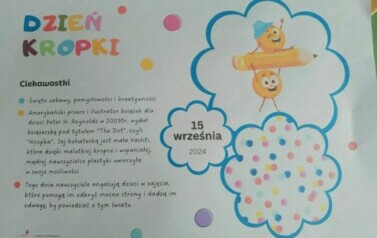 DZIEŃ
KROPKI
Ciekawostki
Święto zabawy, pomysłowości i kreatywności
Amerykański pisarz i ilustrator książek dla
dzieci Peter H. Reynolds w 2003r. wydał
książeczkę pod tytułem "The Dot", czyli
"Kropka". Jej bohaterką jest mała Vashti,
która dzięki malutkiej kropce i wspaniałej,
mądrej nauczycielce plastyki uwierzyła
w swoje możliwości
Tego dnia nauczyciele angażują dzieci w zajęcia,
które pomogą im odkryć mocne strony i dadzą im
odwagę, by powiedzieć o tym światu
15
września
2024